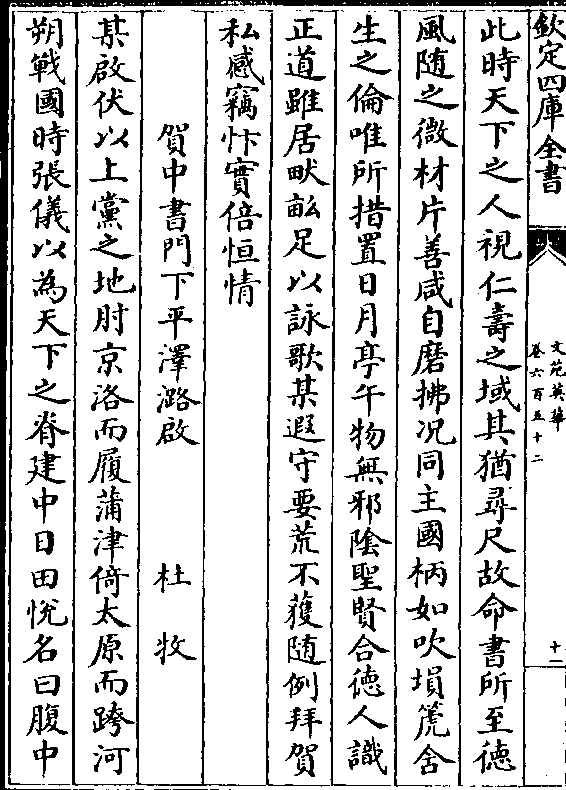 欽定四庫全書
文苑英華
卷六百五十二
十二
此時天下之人視仁壽之域其猶尋尺故命書所至徳
風随之微材片善咸自磨拂况同主國柄如吹塤箎舍
生之倫唯所措置日月亭午物無邪陰聖賢合徳人識
正道雖居畎畝足以詠歌某遐守要荒不獲随例拜賀
私感竊忭實倍恒情
賀中書門下平澤潞啟
杜牧
某啟伏以上黨之地肘京洛而履蒲津倚太原而跨河
朔戰國時張儀以為天下之脊建中日田悅名曰腹中